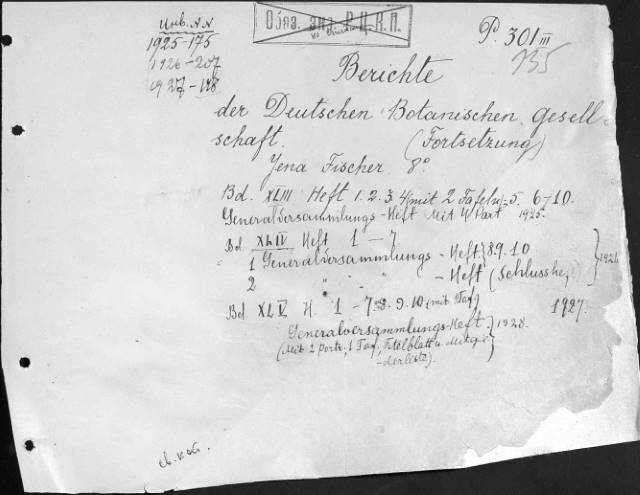 Инв. АА
1925-175
1926-207
1927-128
Обяз. экз. Р.Ц.К.П.
P. 301 III
735
Berichte
der Deutschen Botanischen Gesell-
schaft. (Fortsetzung)
Jena Fischer 8°
Bd. XLIII Heft 1. 2. 3. 4 (mit 2 Tafeln) 5. 6-10.
Generalversammlungs-Heft Mit 4 Port. 1925.
Bd XLIV Heft 1-7
1 Generalversammlungs - Heft } 8.9.10
2 " " - Heft (Schlussheft) } 1926
Bd. XLV H. 1 - 7. 8. 9. 10 (mit Taf) 1927.
Generalversammlungs-Heft } 1928.
(Mit 2 Portr., 1 Taf, Titelblatt u. Mitglie-
-derliste).
св. кат.